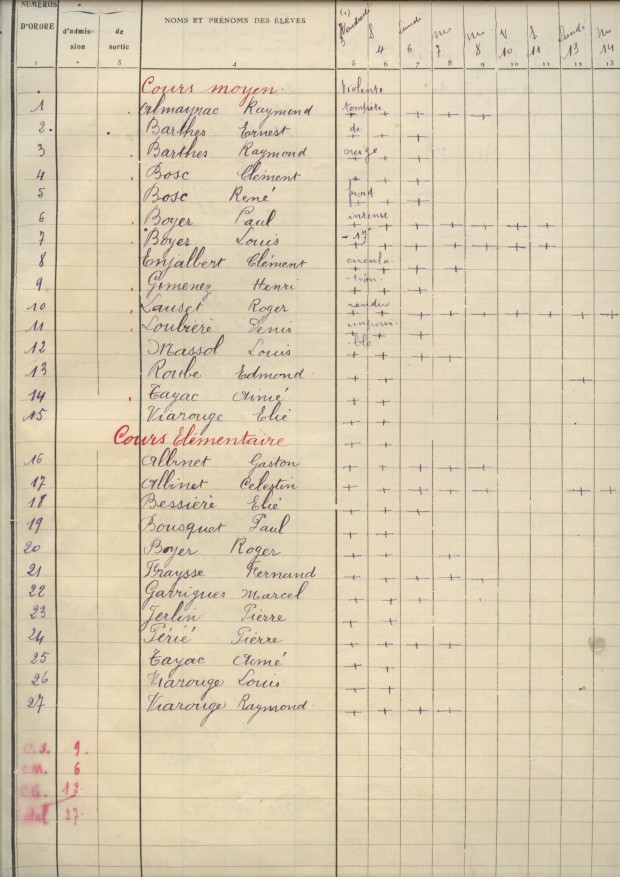 NUMÉROS
D'ORDRE d'admission de sortie NOMS ET PRÉNOMS DES ÉLÈVES
(1) Vendredi S Lundi M M V S Lundi M
3 4 6 7 8 10 11 13 14
1 3 4 5 6 7 8 9 10 11 12 13
Cours moyen. Violente
1 Almayrac Raymond tempête
2. Barthes Ernest de
3 Barthes Raymond neige
4 Bosc Clément
5 Bosc René froid
6 Boyer Paul intense
7 Boyer Louis -17°
8 Enjalbert Clément circula-
9 Gimenez Henri tion
10 Lauset Roger rendue
11 Loubière Denis impossi-
12 Massol Louis ble
13 Roube Edmond
14 Tayac Aimé
15 Viarouge Elié
Cours Elémentaire
16 Albinet Gaston
17 Albinet Celestin
18 Bessière Elié
19 Bousquet Paul
20 Boyer Roger
21 Fraysse Fernand
22 Garrigues Marcel
23 Jerlin Pierre
24 Périé Pierre
25 Tayac Aimé
26 Viarouge Louis
27 Viarouge Raymond
C.S. 9.
C.M. 6
C.E. 12
Total 27